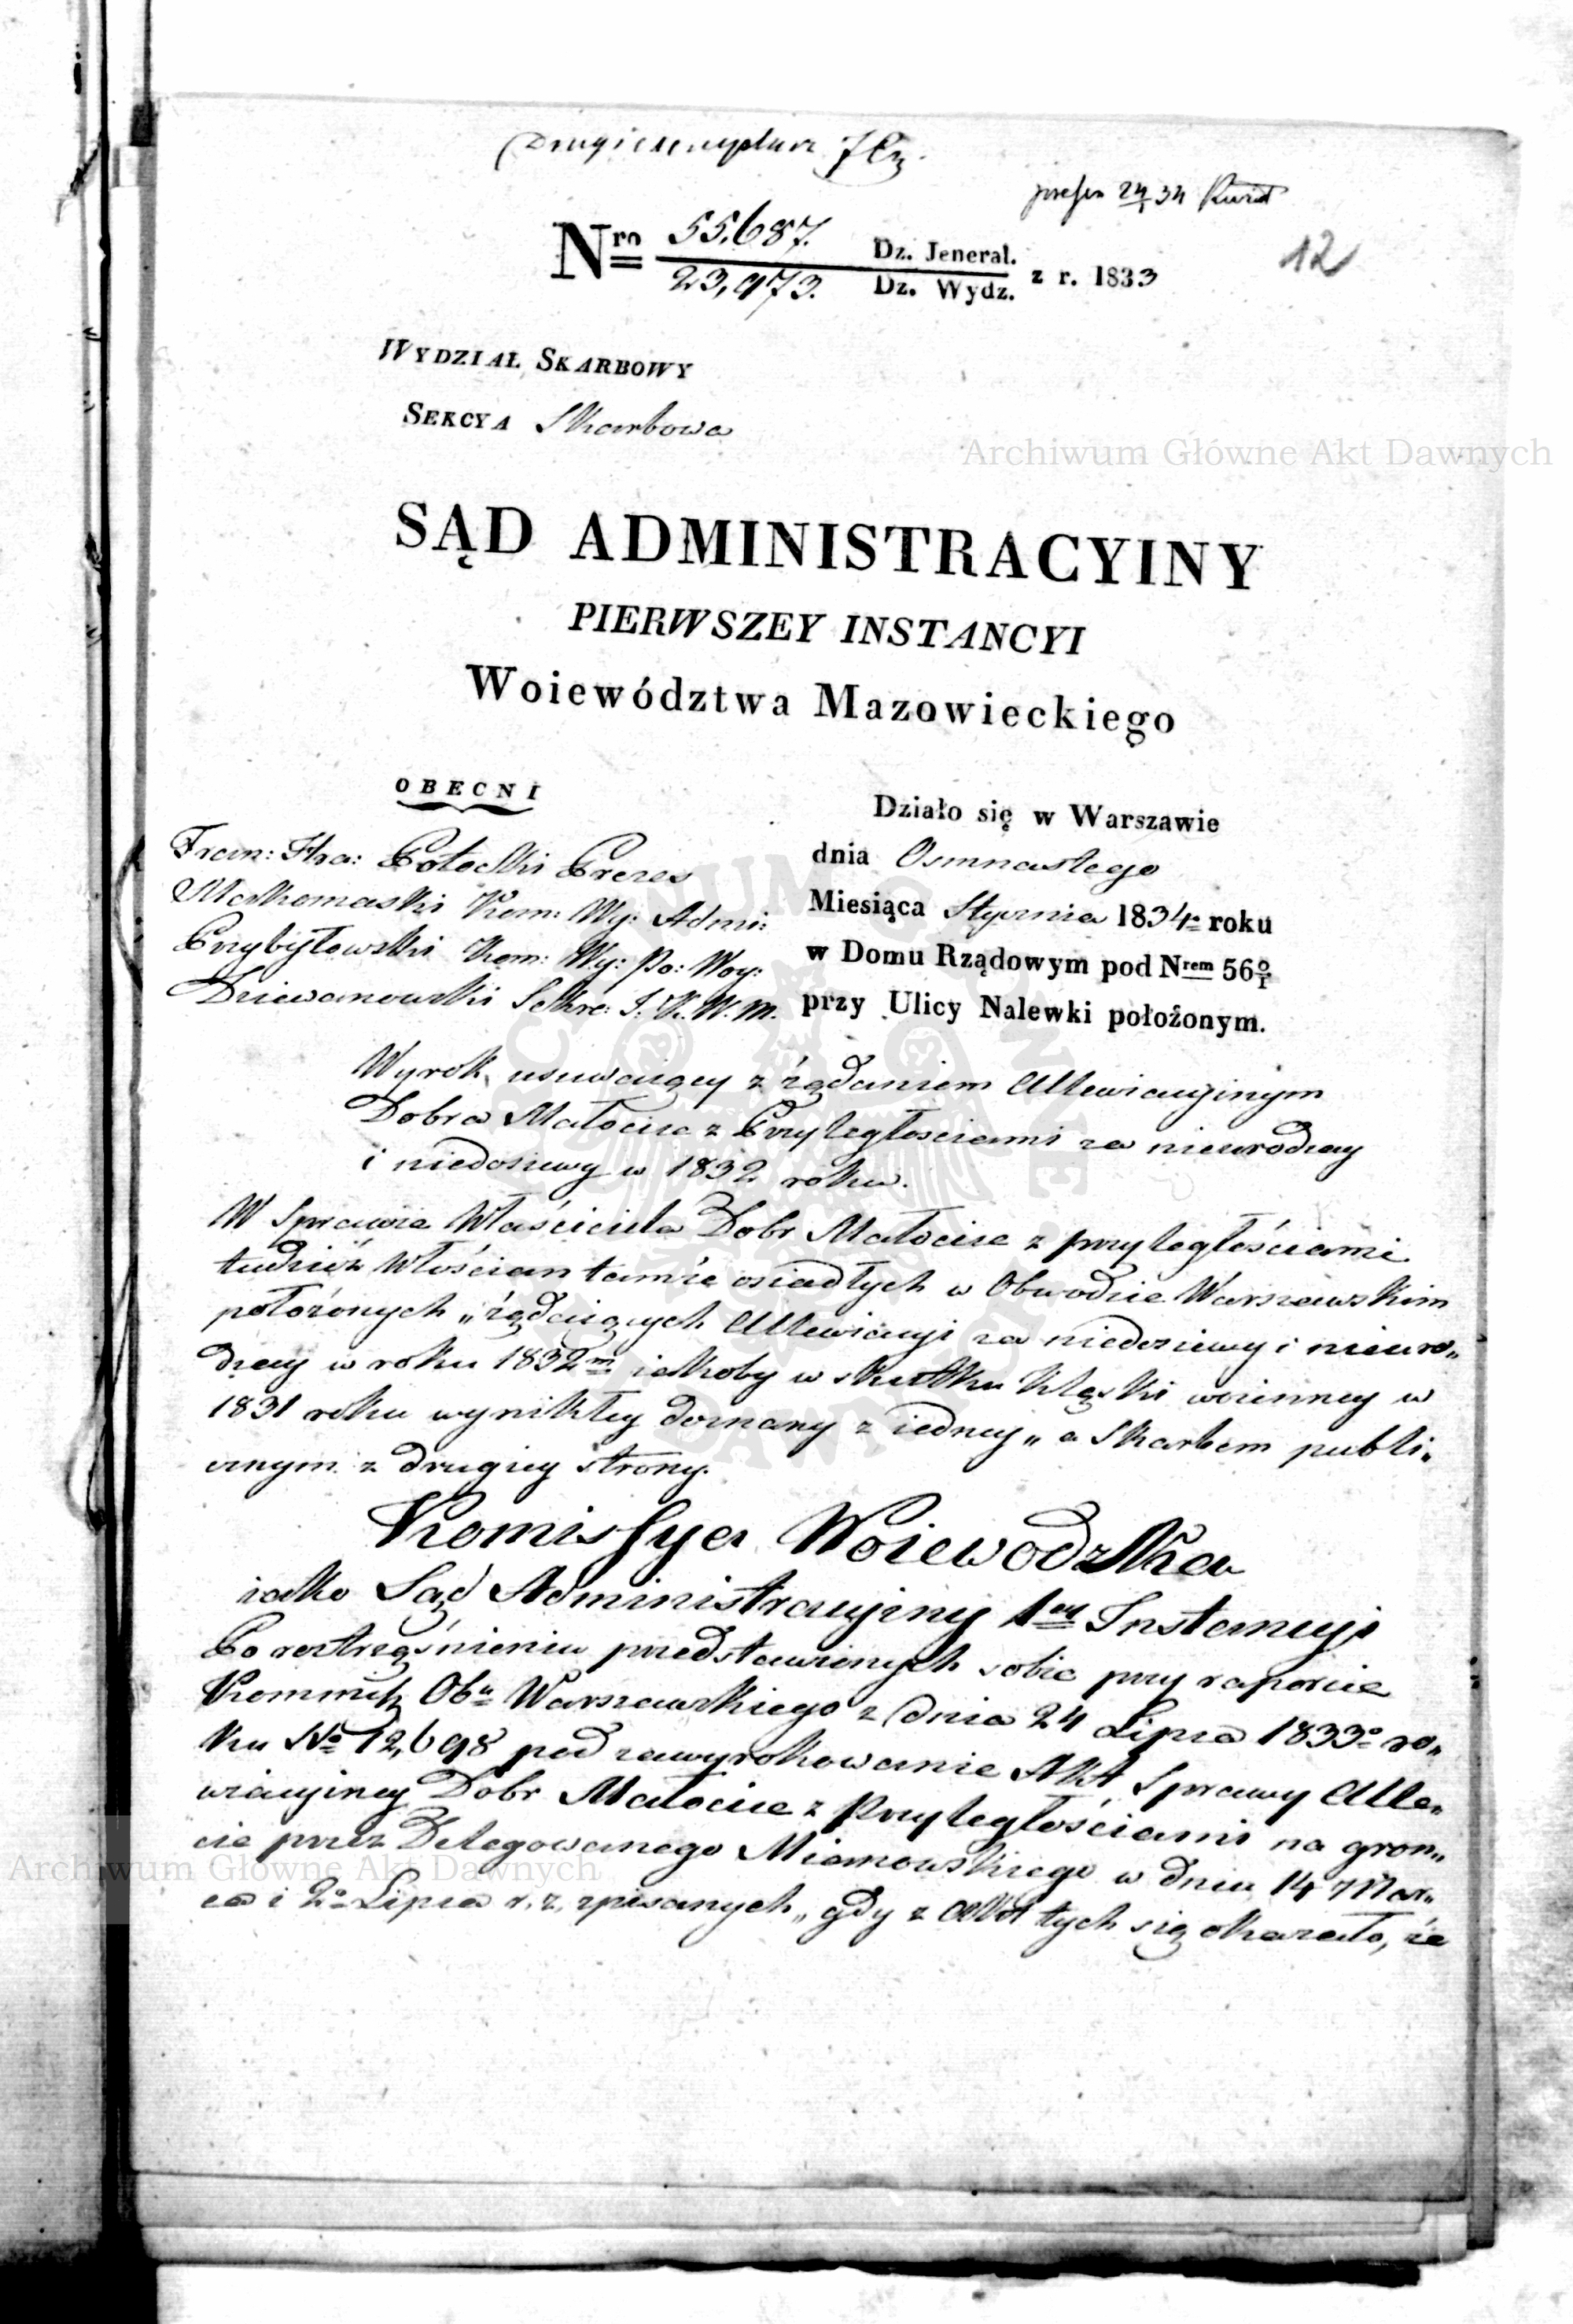 Drugi exemplarz
presen 24/1 34
12
Nro 55,687. Dz. Jeneral.
23,973. Dz. Wydz. z r. 1833
WYDZIAŁ SKARBOWY
SEKCYA Skarbowa
Archiwum Główne Akt Dawnych
SĄD ADMINISTRACYINY
PIERWSZEY INSTANCYI
Woiewództwa Mazowieckiego
OBECNI
Fran: Hra: Potocki Prezes
Makomaski Kom: Wy: Admi:
Przybyłowski Kom: Wy: Po: Woy:
Dziewanowski Sekre: J. K. W. M.
Działo się w Warszawie
dnia Osmnastego
Miesiąca Stycznia 1834 roku
w Domu Rządowym pod Nrem 56 0/1
przy Ulicy Nalewki położonym.
Wyrok usuwaiący z żądaniem Allewiacyinym
Dobra Małocice z Przyległościami za nieurodzay
i niedosiewy w 1832 roku.
W Sprawie Właściciela Dobr Małocice z przyległościami
tudzież Włościan tamże osiadłych w Obwodzie Warszawskim
położonych „żądaiących Allewiacyi za niedosiewy i nieuro„
dzay w roku 1832m iakoby w skutku klęski woienney w
1831 roku wynikłey doznany z iedney„ a Skarbem publi„
cznym z drugiey strony.
Komissya Woiewodzka
iako Sąd Administracyiny 1ey Instancyi
Po roztrząśnieniu przedstawionych sobie przy raporcie
Kommissa Obu Warszawskiego z dnia 24 Lipca 1833o ro„
ku No 12,698 pod zawyrokowanie Akt Sprawy Alle„
wiacyiney Dobr Małocice z Przyległościami na grun„
cie przez Delegowanego Mianowskiego w dniu 14 Mar„
ca i 2o Lipca r. z. spisanych„ gdy z Akt tych się okazało, że
Archiwum Główne Akt Dawnych